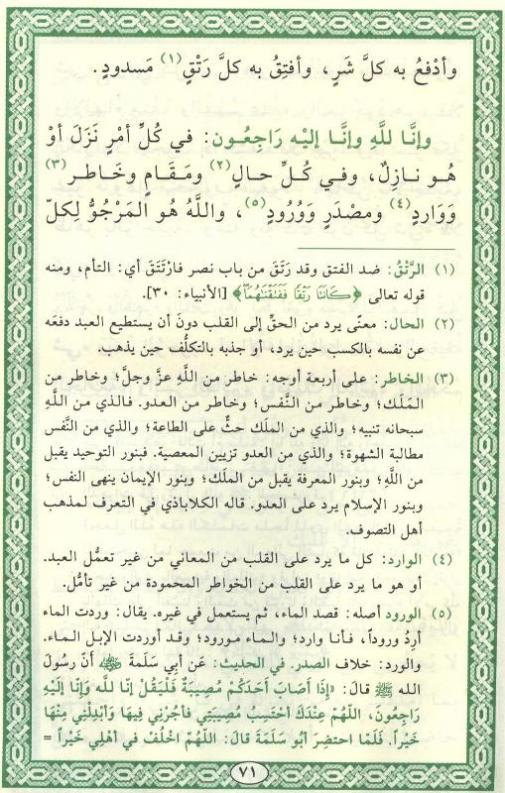 وأدْفعُ به كلَّ شَرٍ، وأفتِقُ به كلَّ رَتْقٍ(١) مَسدودٍ.
وإنَّا للَّهِ وإنَّا إليْه رَاجِعُـون: في كُلِّ أمْرٍ نَزَلَ أوْ
هُـو نـازِلٌ، وفـي كُـلِّ حـالٍ(٢) ومَقَـامٍ وخَاطـرٍ(٣)
وَوَارِدٍ(٤) ومصْدَرٍ وَوُرُودٍ(٥)، واللَّهُ هُو المَرْجوُّ لِكلّ
(١) الرَّتْقُ: ضد الفتق وقد رَتَقَ من باب نصر فارْتَتَقَ أي: التأم، ومنه
قوله تعالى ﴿كَانَتَا رَتْقًا فَفَتَقْنَاهُمَا﴾ [الأنبياء: ٣٠].
(٢) الحال: معنًى يرد من الحقِّ إلى القلب دونَ أن يستطيع العبد دفعَه
عن نفسه بالكسب حين يرد، أو جذبه بالتكلُّف حين يذهب.
(٣) الخاطر: على أربعة أوجه: خاطر من اللَّهِ عزَّ وجلَّ؛ وخاطر من
المَلَك؛ وخاطر من النَّفس؛ وخاطر من العدو. فالذي من اللَّهِ
سبحانه تنبيه؛ والذي من الملَك حثٌّ على الطاعة؛ والذي من النَّفس
مطالبة الشهوة؛ والذي من العدو تزيين المعصية. فبنور التوحيد يقبل
من اللَّهِ؛ وبنور المعرفة يقبل من الملَك؛ وبنور الإيمان ينهى النفس؛
وبنور الإسلام يرد على العدو. قاله الكلاباذي في التعرف لمذهب
أهل التصوف.
(٤) الوارد: كل ما يرد على القلب من المعاني من غير تعمُّل العبد.
أو هو ما يرد على القلب من الخواطر المحمودة من غير تأمُّل.
(٥) الورود أصله: قصد الماء، ثم يستعمل في غيره. يقال: وردت الماء
أرِدُ وروداً، فـأنـا وارد؛ والمـاء مـورود؛ وقـد أوردت الإبـل المـاء.
والورد: خلاف الصدر. في الحديث: عَن أبِي سَلَمَةَ ﷺ أنّ رسُولَ
الله ﷺ قَالَ: «إذَا أصَابَ أحَدَكُمْ مُصِيبَةٌ فَلْيَقُلْ إنَّا للَّه وَإنَّا إلَيْهِ
رَاجِعُونَ، اللَّهُمَّ عِنْدَكَ احْتَسِبُ مُصِيبَتِي فأجُرْنِي فِيهَا وَأبْدِلْنِي مِنْهَا
خَيْراً. فَلَمّا احتضِرَ أبُو سَلَمَةَ قالَ: اللَّهُمّ اخْلُفْ في أهْلِي خَيْراً =
٧١